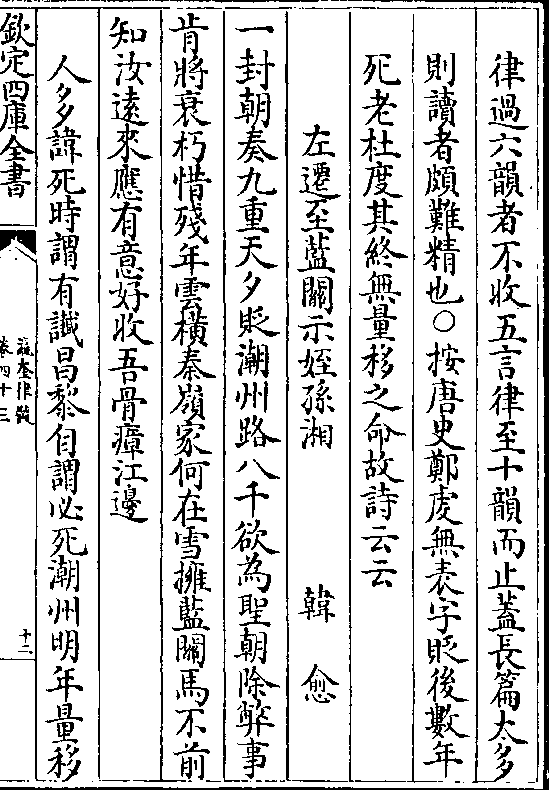 律過六韻者不收五言律至十韻而止蓋長篇太多
則讀者頗難精也○按唐史鄭虔無表字貶後數年
死老杜度其終無量移之命故詩云云
左遷至藍關示姪孫湘　韓愈
一封朝奏九重天夕貶潮州路八千欲為聖朝除弊事
肯將衰朽惜殘年雲橫秦嶺家何在雪擁藍關馬不前
知汝逺來應有意好收吾骨瘴江邊
人多諱死時謂有讖昌黎自謂必死潮州明年量移
欽定四庫全書
瀛奎律髓
卷四十三
十二